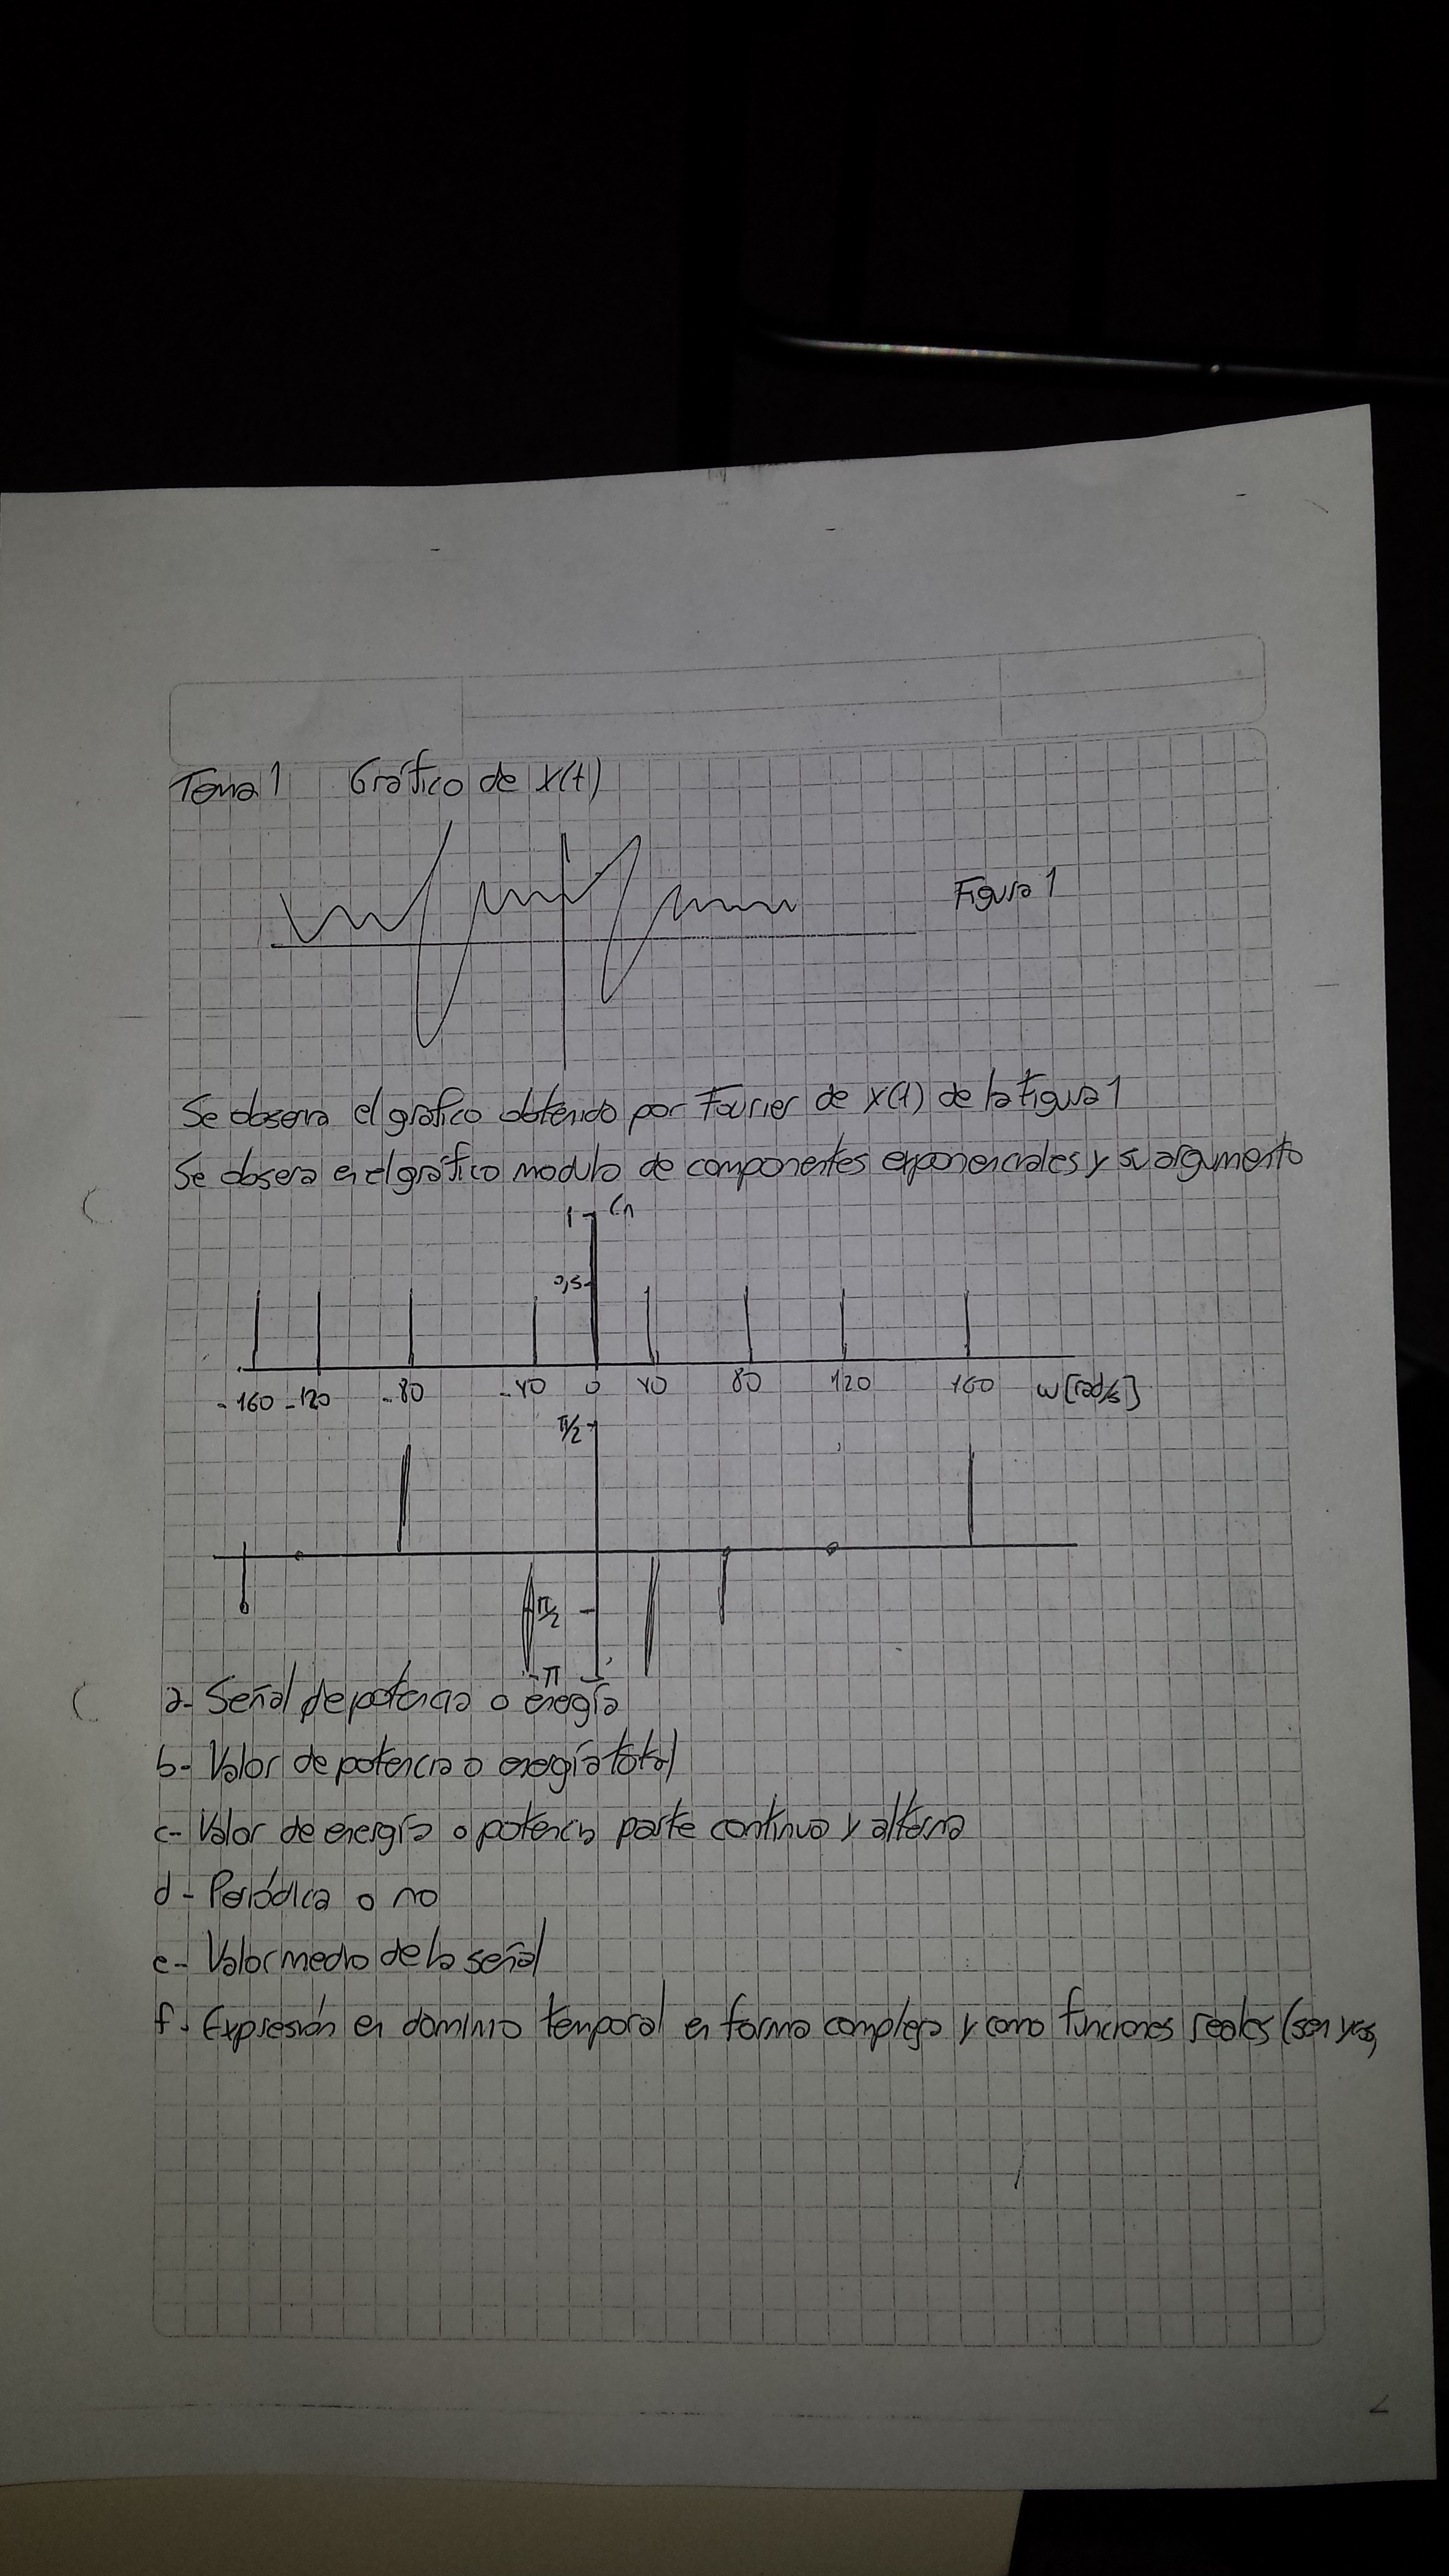 Tema 1 Gráfico de x(t)
Figura 1
Se observa el gráfico obtenido por Fourier de x(t) de la Figura 1
Se obsera en el gráfico modulo de componentes exponenciales y su argumento
1 Cn
0,5
-160 -120 -80 -40 0 40 80 120 160 ω[rad/s]
π/2
π/2
-π
a- Señal de potencia o energía
b- Valor de potencia o energía total
c- Valor de energía o potencia parte continua y alterna
d- Periódica o no
e- Valor medio de la señal
f- Expresión en dominio temporal en forma compleja y como funciones reales (sen y cos)